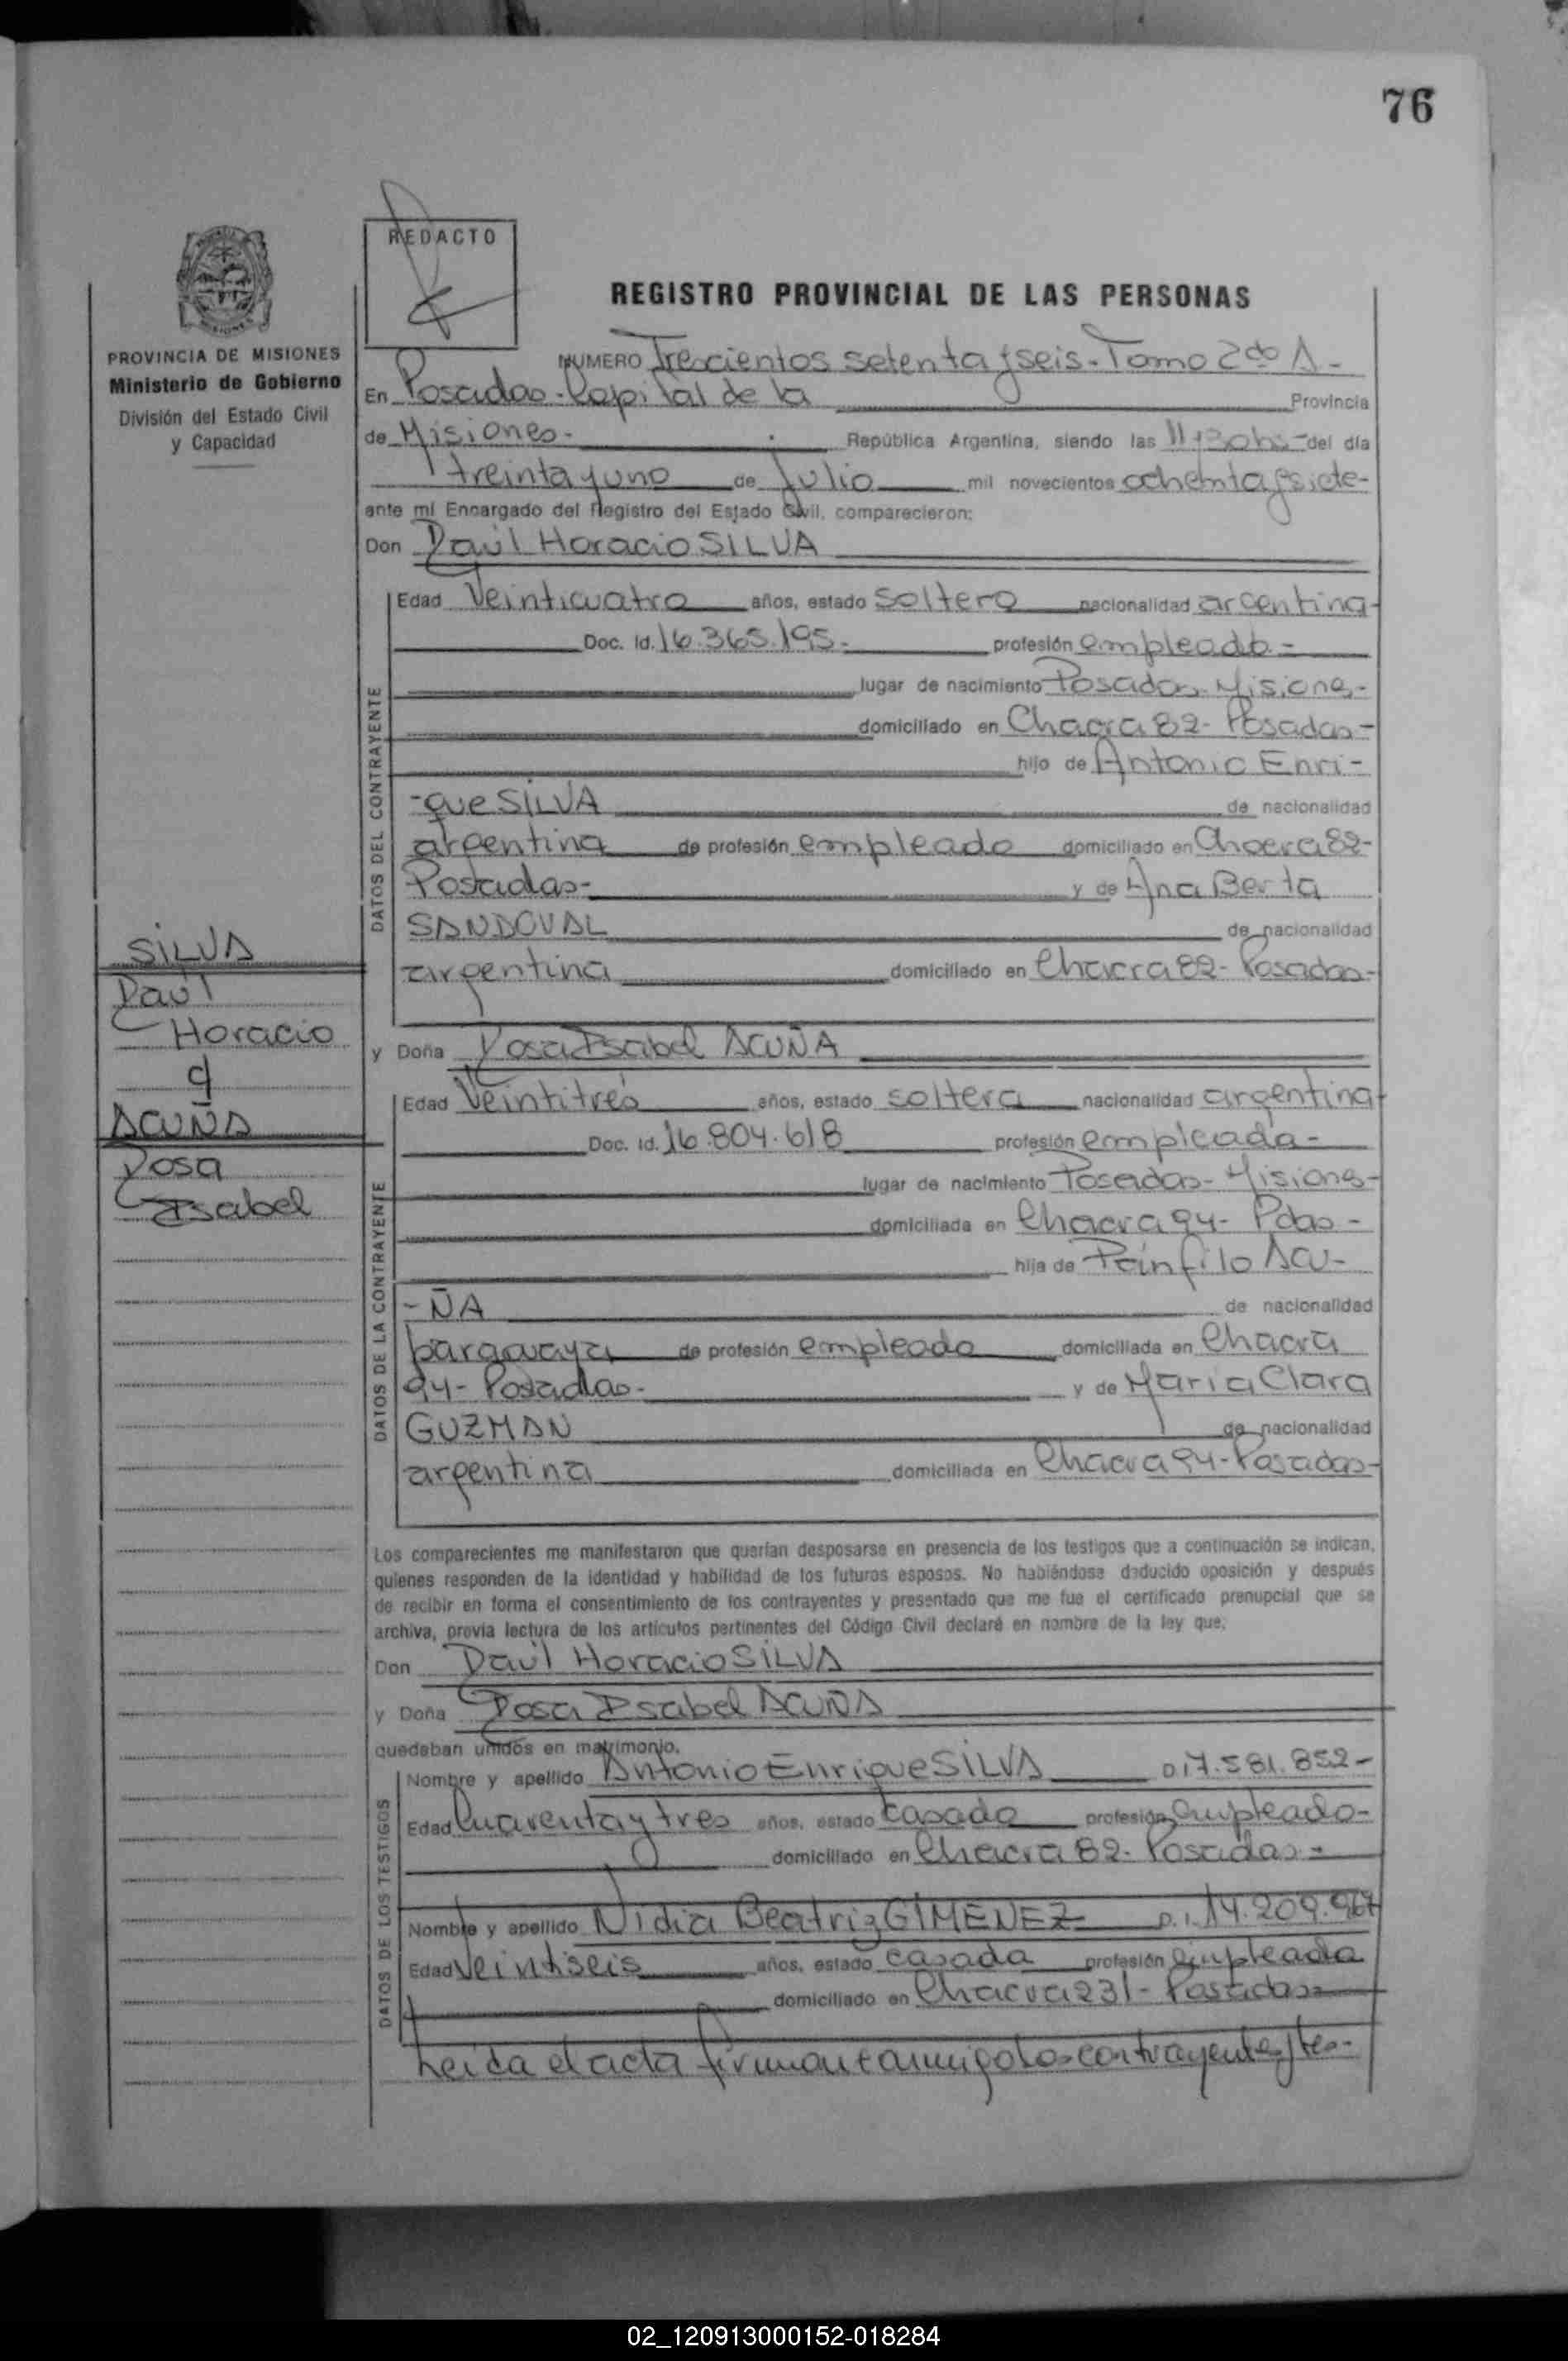 76
REDACTO
REGISTRO PROVINCIAL DE LAS PERSONAS
PROVINCIA DE MISIONES
Ministerio de Gobierno
División del Estado Civil
y Capacidad
NUMERO Trescientos setenta y seis - Tomo 2do A -
En Posadas - Capital de la Provincia
de Misiones - República Argentina, siendo las 11,30 hs - del día
treinta y uno de Julio mil novecientos ochenta y siete -
ante mi Encargado del Registro del Estado Civil, comparecieron:
Don Raúl Horacio SILVA
DATOS DEL CONTRAYENTE
Edad Veinticuatro años, estado soltero nacionalidad argentina -
Doc. Id. 16.365.195 - profesión empleado -
lugar de nacimiento Posadas - Misiones -
domiciliado en Chacra 82 - Posadas -
hijo de Antonio Enri -
- que SILVA de nacionalidad
argentina de profesión empleado domiciliado en Chacra 82 -
Posadas - y de Ana Berta
SANDOVAL de nacionalidad
argentina domiciliado en Chacra 82 - Posadas -
SILVA
Raúl
Horacio
c/
ACUÑA
Rosa
Isabel
y Doña Rosa Isabel ACUÑA
DATOS DE LA CONTRAYENTE
Edad Veintitrés años, estado soltera nacionalidad argentina
Doc. Id. 16.804.618 profesión empleada -
lugar de nacimiento Posadas - Misiones -
domiciliada en Chacra 94 - Pdas -
hija de Pánfilo ACU -
- ÑA de nacionalidad
paraguaya de profesión empleado domiciliada en Chacra
94 - Posadas - y de María Clara
GUZMAN de nacionalidad
argentina domiciliada en Chacra 94 - Posadas -
Los comparecientes me manifestaron que querían desposarse en presencia de los testigos que a continuación se indican,
quienes responden de la identidad y habilidad de los futuros esposos. No habiéndose deducido oposición y después
de recibir en forma el consentimiento de los contrayentes y presentado que me fue el certificado prenupcial que se
archiva, previa lectura de los artículos pertinentes del Código Civil declaré en nombre de la ley que:
Don Raúl Horacio SILVA
y Doña Rosa Isabel ACUÑA
quedaban unidos en matrimonio.
DATOS DE LOS TESTIGOS
Nombre y apellido Antonio Enrique SILVA D.I 7.581.852 -
Edad Cuarenta y tres años, estado casado profesión empleado -
domiciliado en Chacra 82 - Posadas -
Nombre y apellido Nidia Beatriz GIMENEZ D.I. 14.209.967
Edad Veintiseis años, estado casada profesión empleada
domiciliado en Chacra 231 - Posadas -
Leida el acta firman conmigo los contrayentes y tes -
02_120913000152-018284